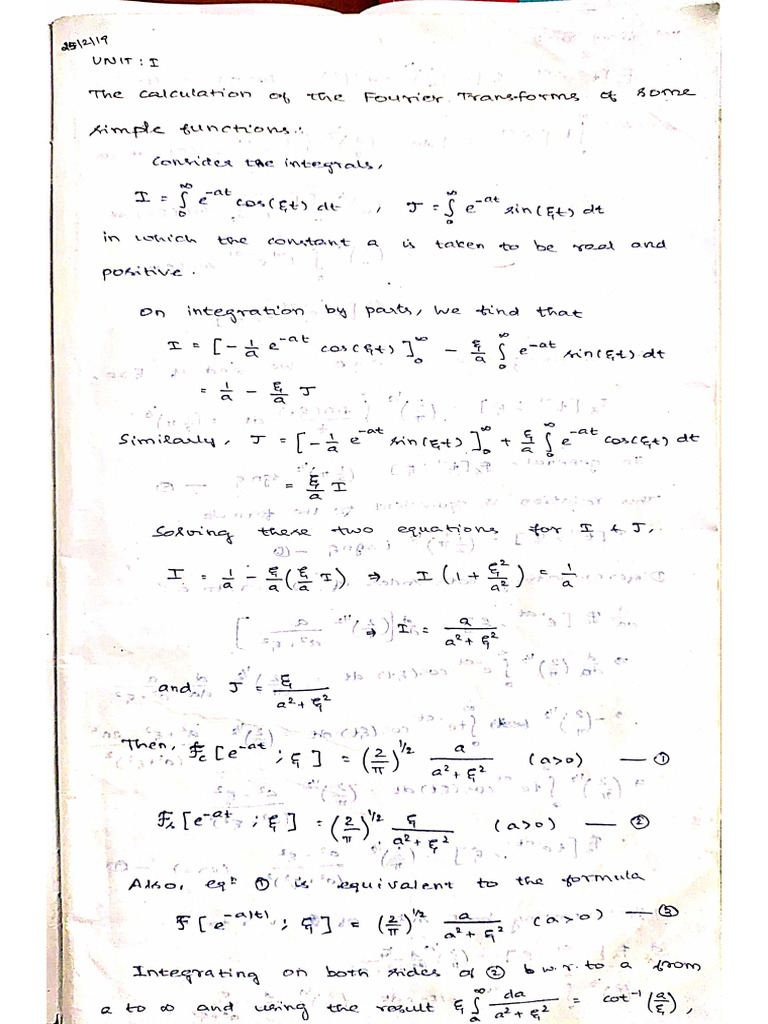 25/2/19
UNIT : I
The calculation of the Fourier Transforms of some
simple functions:
Consider the integrals,
I = ∫₀^∞ e^{-at} cos(ξt) dt , J = ∫₀^∞ e^{-at} sin(ξt) dt
in which the constant a is taken to be real and
positive.
On integration by parts, we find that
I = [-1/a e^{-at} cos(ξt)]₀^∞ - ξ/a ∫₀^∞ e^{-at} sin(ξt) dt
= 1/a - ξ/a J
Similarly, J = [-1/a e^{-at} sin(ξt)]₀^∞ + ξ/a ∫₀^∞ e^{-at} cos(ξt) dt
= ξ/a I
Solving these two equations for I & J,
I = 1/a - ξ/a (ξ/a I) ⇒ I (1 + ξ²/a²) = 1/a
⇒ I = a/(a² + ξ²)
and J = ξ/(a² + ξ²)
Then, F_c [e^{-at} ; ξ] = (2/π)^{1/2} a/(a² + ξ²) (a>0) — ①
F_s [e^{-at} ; ξ] = (2/π)^{1/2} ξ/(a² + ξ²) (a>0) — ②
Also, eqⁿ ① is equivalent to the formula
F [e^{-a|t|} ; ξ] = (2/π)^{1/2} a/(a² + ξ²) (a>0) — ③
Integrating on both sides of ② b w.r. to a from
a to ∞ and using the result ξ ∫ₐ^∞ da/(a² + ξ²) = cot⁻¹ (a/ξ),